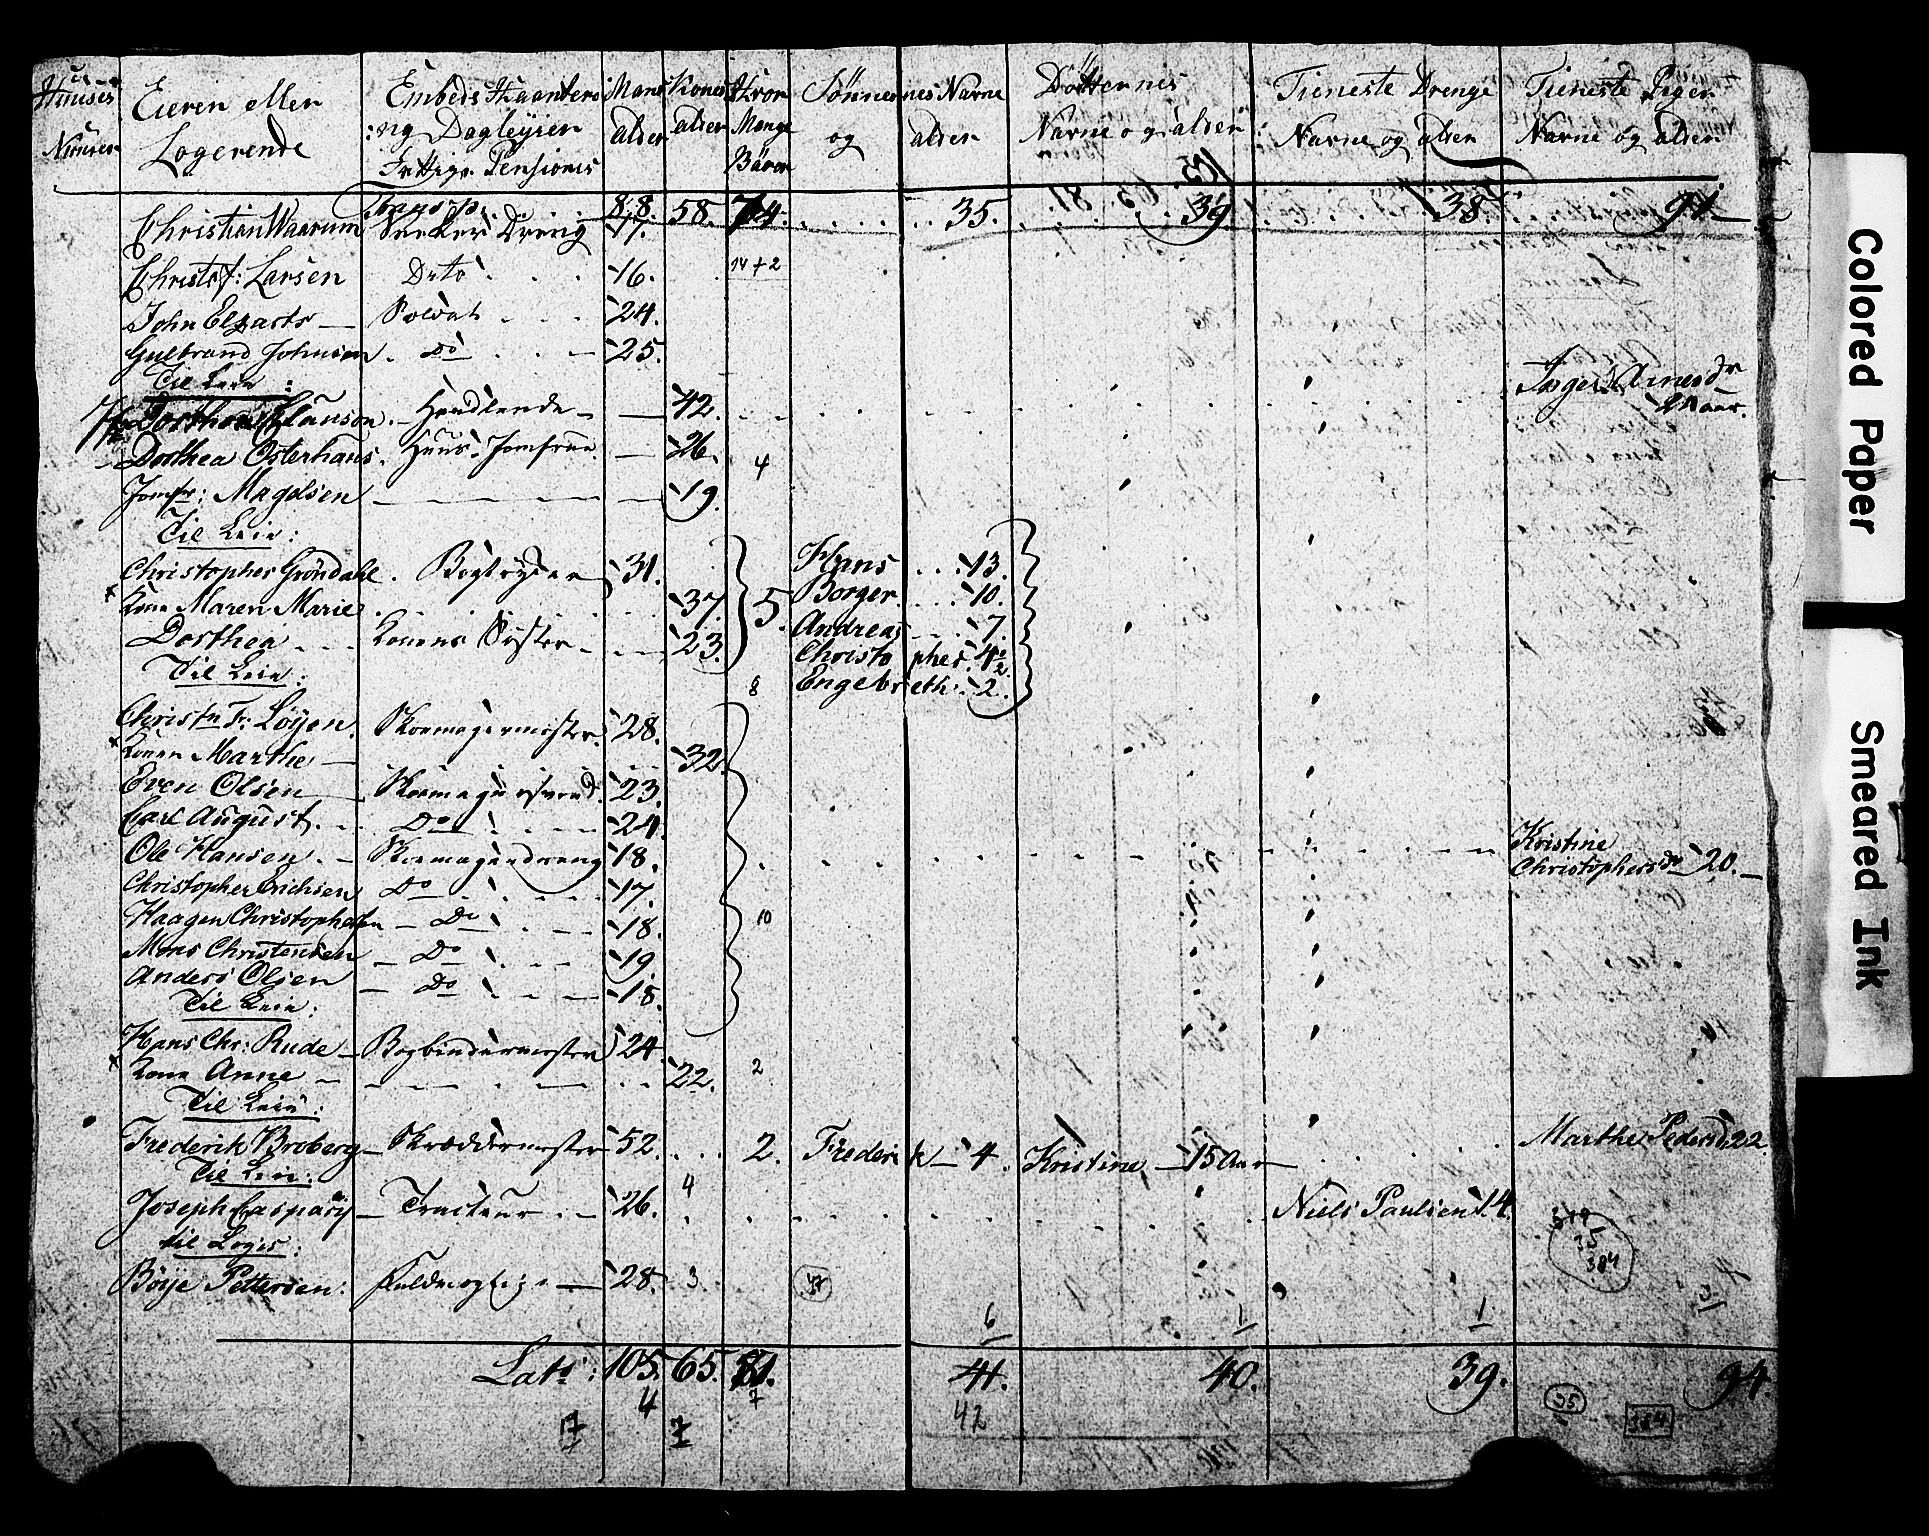 Huuses Nummer
Eieren eller Logerende
Embeds Haanter:ng Dagleyien Frttigr. Pensionis
Mans alder
Kones alder
Hvor Mange Börn
Sönnernes Navne og alder
Dötternes Navne og alder
Tieneste Drenge Navne og alder
Tieneste Piger Navne og alder
Transp. 88. 58. 74. 35. 39. 38. 91
Christian Waarum Dreng 17.
14+2
Christof: Larsen Dito 16.
John Soldat 24.
Gulbrand Johnsen Do 25.
Til Leie:
Dorthea Clauson Handlende 42. Inger Arnesdr 20 aar.
Dorthea Osterhaus Huus Jomfrue 26. 4
Jomfr: Magelsen 19.
Til Leie:
Christopher Gröndahl Bogtrykker 31. Hans 13.
Kone Maren Marie 37. 5. Borger 10.
Dorthea Konens Syster 23. Andreas 7.
Christopher 4½
Til Leie: 8 Engebreth 2.
Christn Fr: Löyen Skomagermester 28.
Kone Marthe 32.
Even Olsen Skomagersvend 23.
Carl August Do 24.
Ole Hansen Skomagerdreng 18. Kristine Christophersdr 20.
Christopher Erichsen Do 17.
Haagen Christophersen Do 18. 10
Mons Christensen Do 19.
Anders Olsen Do 18.
Til Leie:
Hans Chr: Rude Bogbindermester 24.
Kone Anne 22. 2
Til Leie:
Frederik Broberg Skræddermester 52. 2. Frederik 4. Kristine 15 Aar Marthe Pedersd 22
Til Leie: 4
Joseph Caspary Tracteur 26. Niels Paulsen 14.
til Logis:
379
5
384
Böye Pettersen: Fuldmægtig 28. 3 47
6 1 1 3
Lats: 105. 65. 81. 41. 40. 39. 94.
4 7 42 35 384
17 7
Colored Paper
Smeared Ink